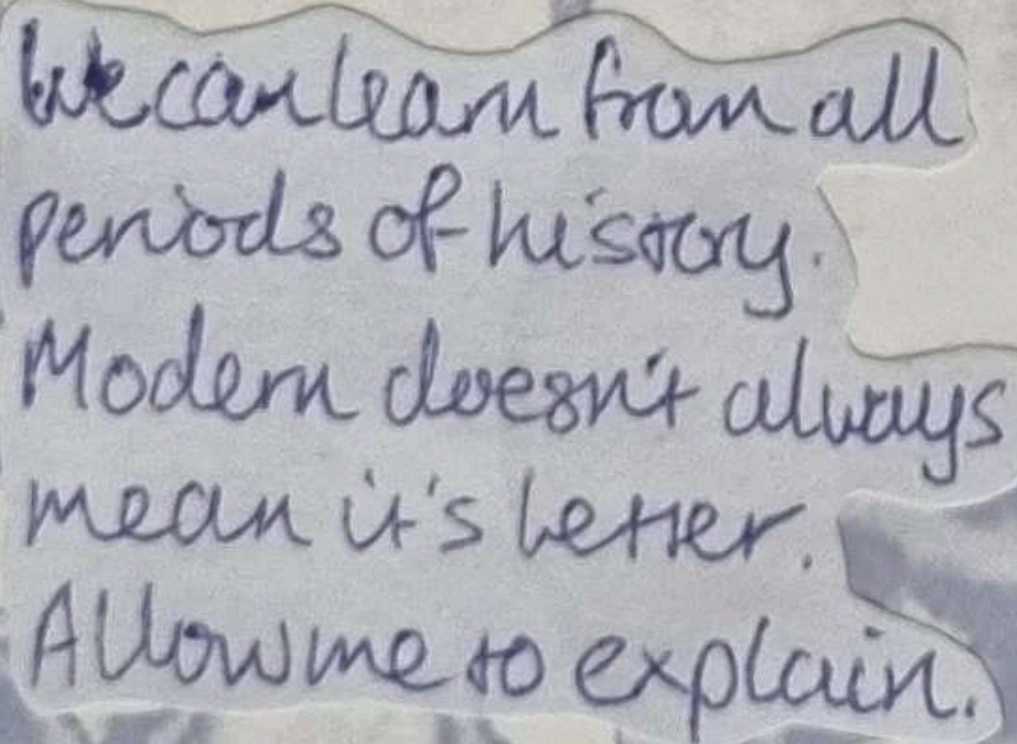 We can learn from all
periods of history.
Modern doesn't always
mean it's better.
Allow me to explain.